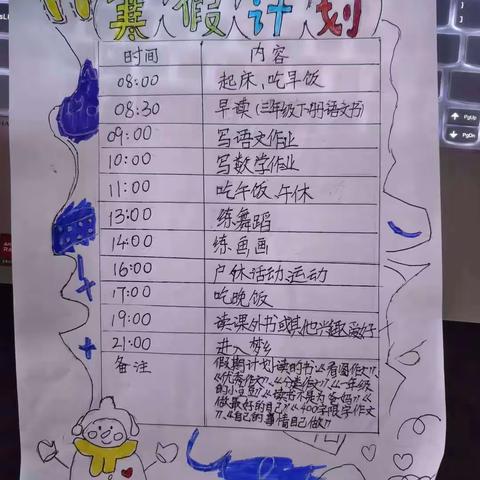 寒假计划
时间 内容
08:00 起床、吃早饭
08:30 早读(三年级下册语文书)
09:00 写语文作业
10:00 写数学作业
11:00 吃午饭、午休
13:00 练舞蹈
14:00 练画画
16:00 户休活动、运动
17:00 吃晚饭
19:00 读课外书或其他兴趣爱好
21:00 进入梦乡
备注 假期计划读的书:《看图作文》、
《优秀作文》、《分类作文》、《一年级
的小豆豆》《读书不是为爸妈》《
做最好的自己》《400字限字作文
》、《自己的事情自己做》
PgUp
PgDn